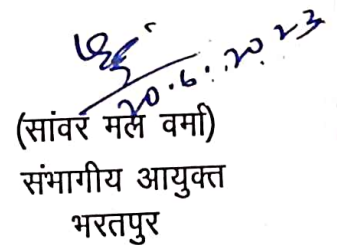 20.6.2023
(सांवर मल वर्मा)
संभागीय आयुक्त
भरतपुर